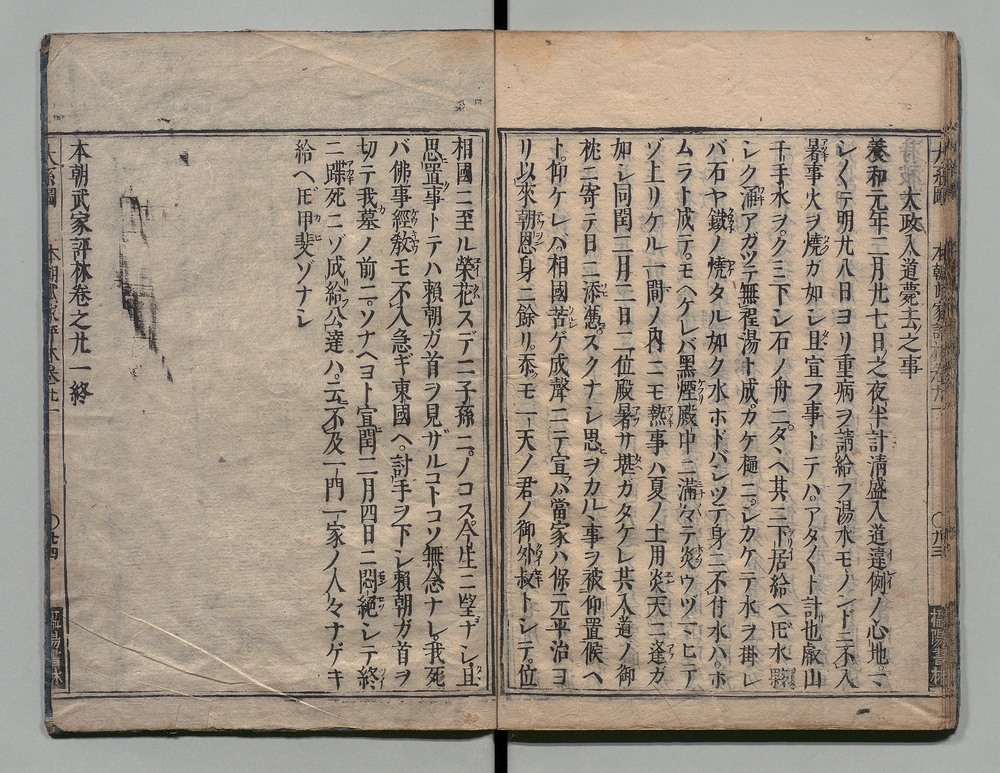 太政入道薨去之事
養和元年二月廿七日之夜半計清盛入道違例ノ心地ニマ
シ〱テ明ル廾八日ヨリ重病ヲ請給フ湯水モノンドニ不入
暑事火ヲ燒ガ如シ且宣フ事トテハ。アタ〱ト計也叡山
千手水ヲ。ク三下シ石ノ舟ニタヽヘ其ニ下居給ヘ𪜈水
シク涌アガツテ無程湯ト成。カケ樋ニ。シカケテ水ヲ掛レ
バ石ヤ鐵ノ燒タル如ク水ホドバシツテ身ニ不付水ハ。ホ
ムラト成テ。モヘケレバ黑煙殿中ニ滿々テ炎ウヅマヒテ
ゾ上リケル一間ノ内ニモ熱事ハ夏ノ土用炎天ニ逢ガ
如シ同閏二月二日ニ位殿暑サ堪ガタケレ共入道ノ御
枕ニ寄テ日ニ添憑ズクナシ思ヲカルヽ事ヲ被仰置候ヘ
ト。仰ケレバ相國苦ゲ成聲ニテ宣ハ當家ハ保元平治ヨ
リ以來朝恩身ニ餘リ。忝モ一天ノ君ノ御外叔トシテ。位
本朝武家評林卷
攝陽書林
相國ニ至ル榮花スデニ子孫ニ。ノコス今生ニ望ナシ且
思置事トテハ賴朝ガ首ヲ見ザルコトコソ無念ナレ。我死
バ佛事經敎モ不入急ギ東國ヘ。討手ヲ下シ賴朝ガ首ヲ
切テ我墓ノ前ニ。ソナヘヨト宣閏二月四日ニ悶絶シテ終
ニ蹀死ニゾ成給公達ハ云不及一門一家ノ人々ナゲキ
給ヘ𪜈甲斐ソナシ
本朝武家評林卷之廾一終
大系圖
本朝武家評林卷廿一
〇廿四
攝陽書林